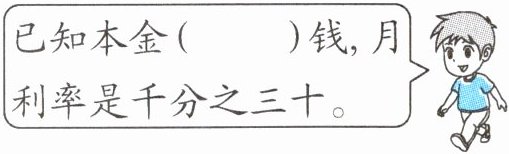 已知本金(　　　)钱,月
利率是千分之三十。